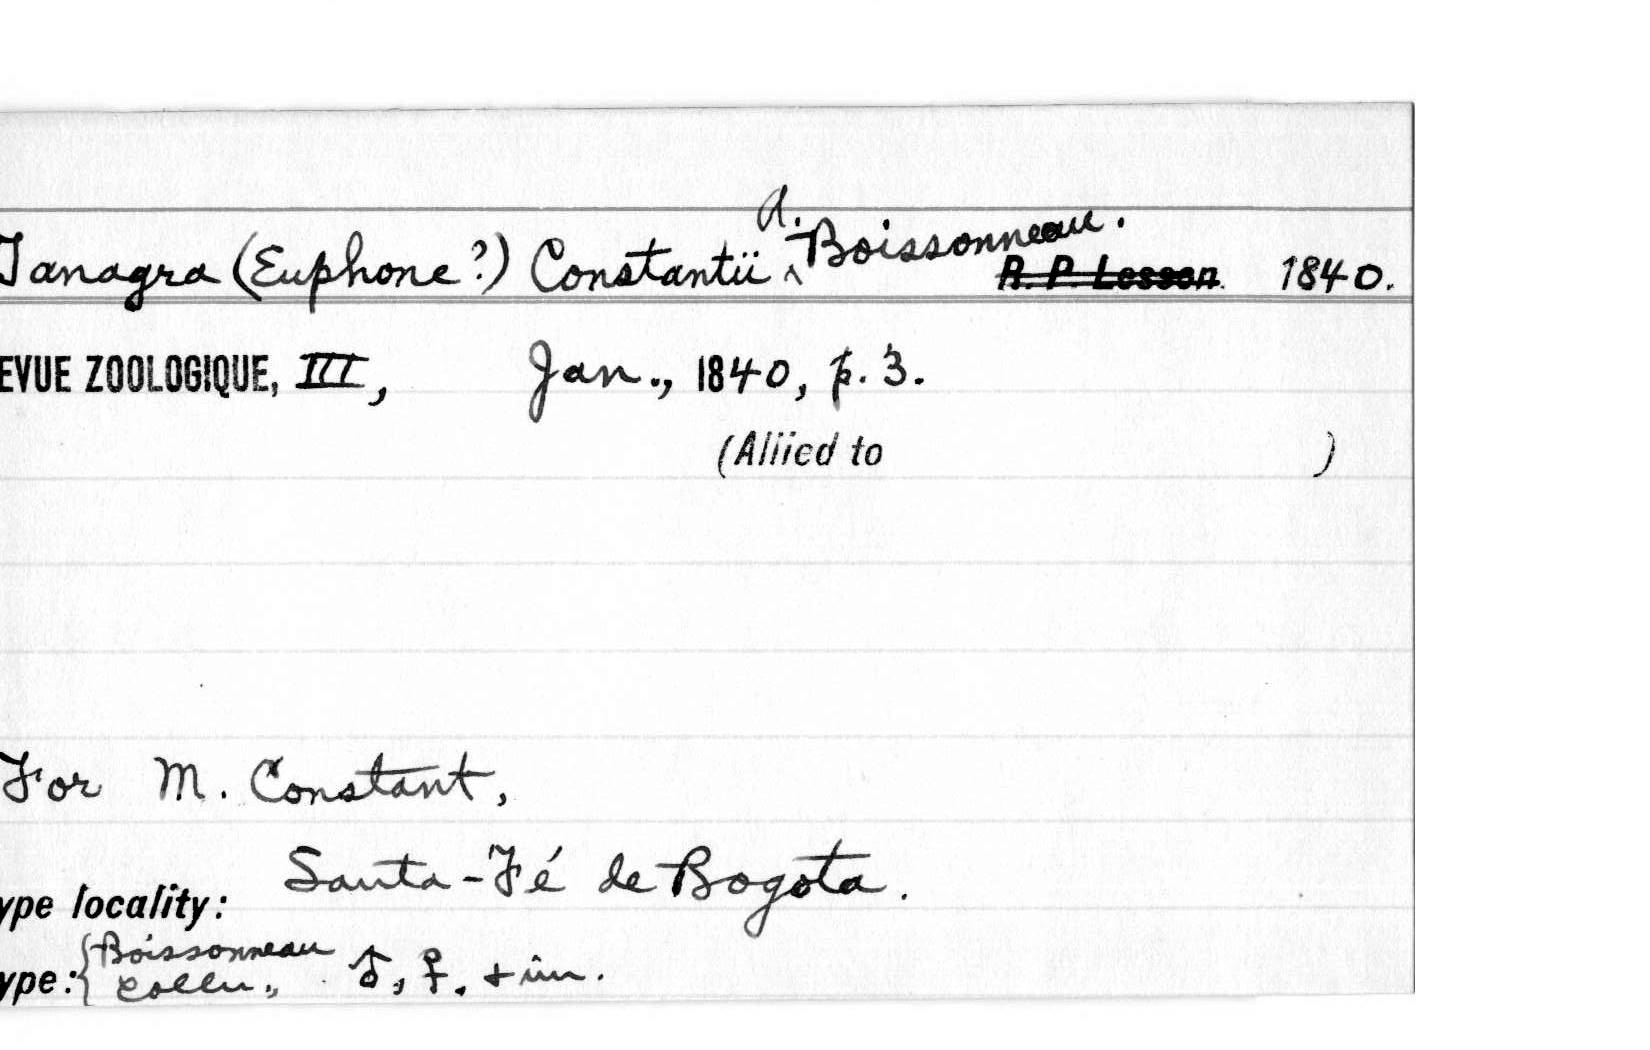 Tanagra (Euphone?) Constantii A. Boissonneau. R. P. Lesson. 1840.
EVUE ZOOLOGIQUE, III, Jan., 1840, p. 3.
(Allied to )
For M. Constant,
Santa-Fé de Bogota.
ype locality:
ype: { Boissonneau Colln., ♂, ♀. + im.